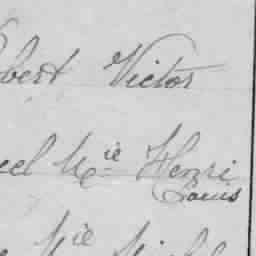 bert Victor
cel Mie Henri
Louis
Mie